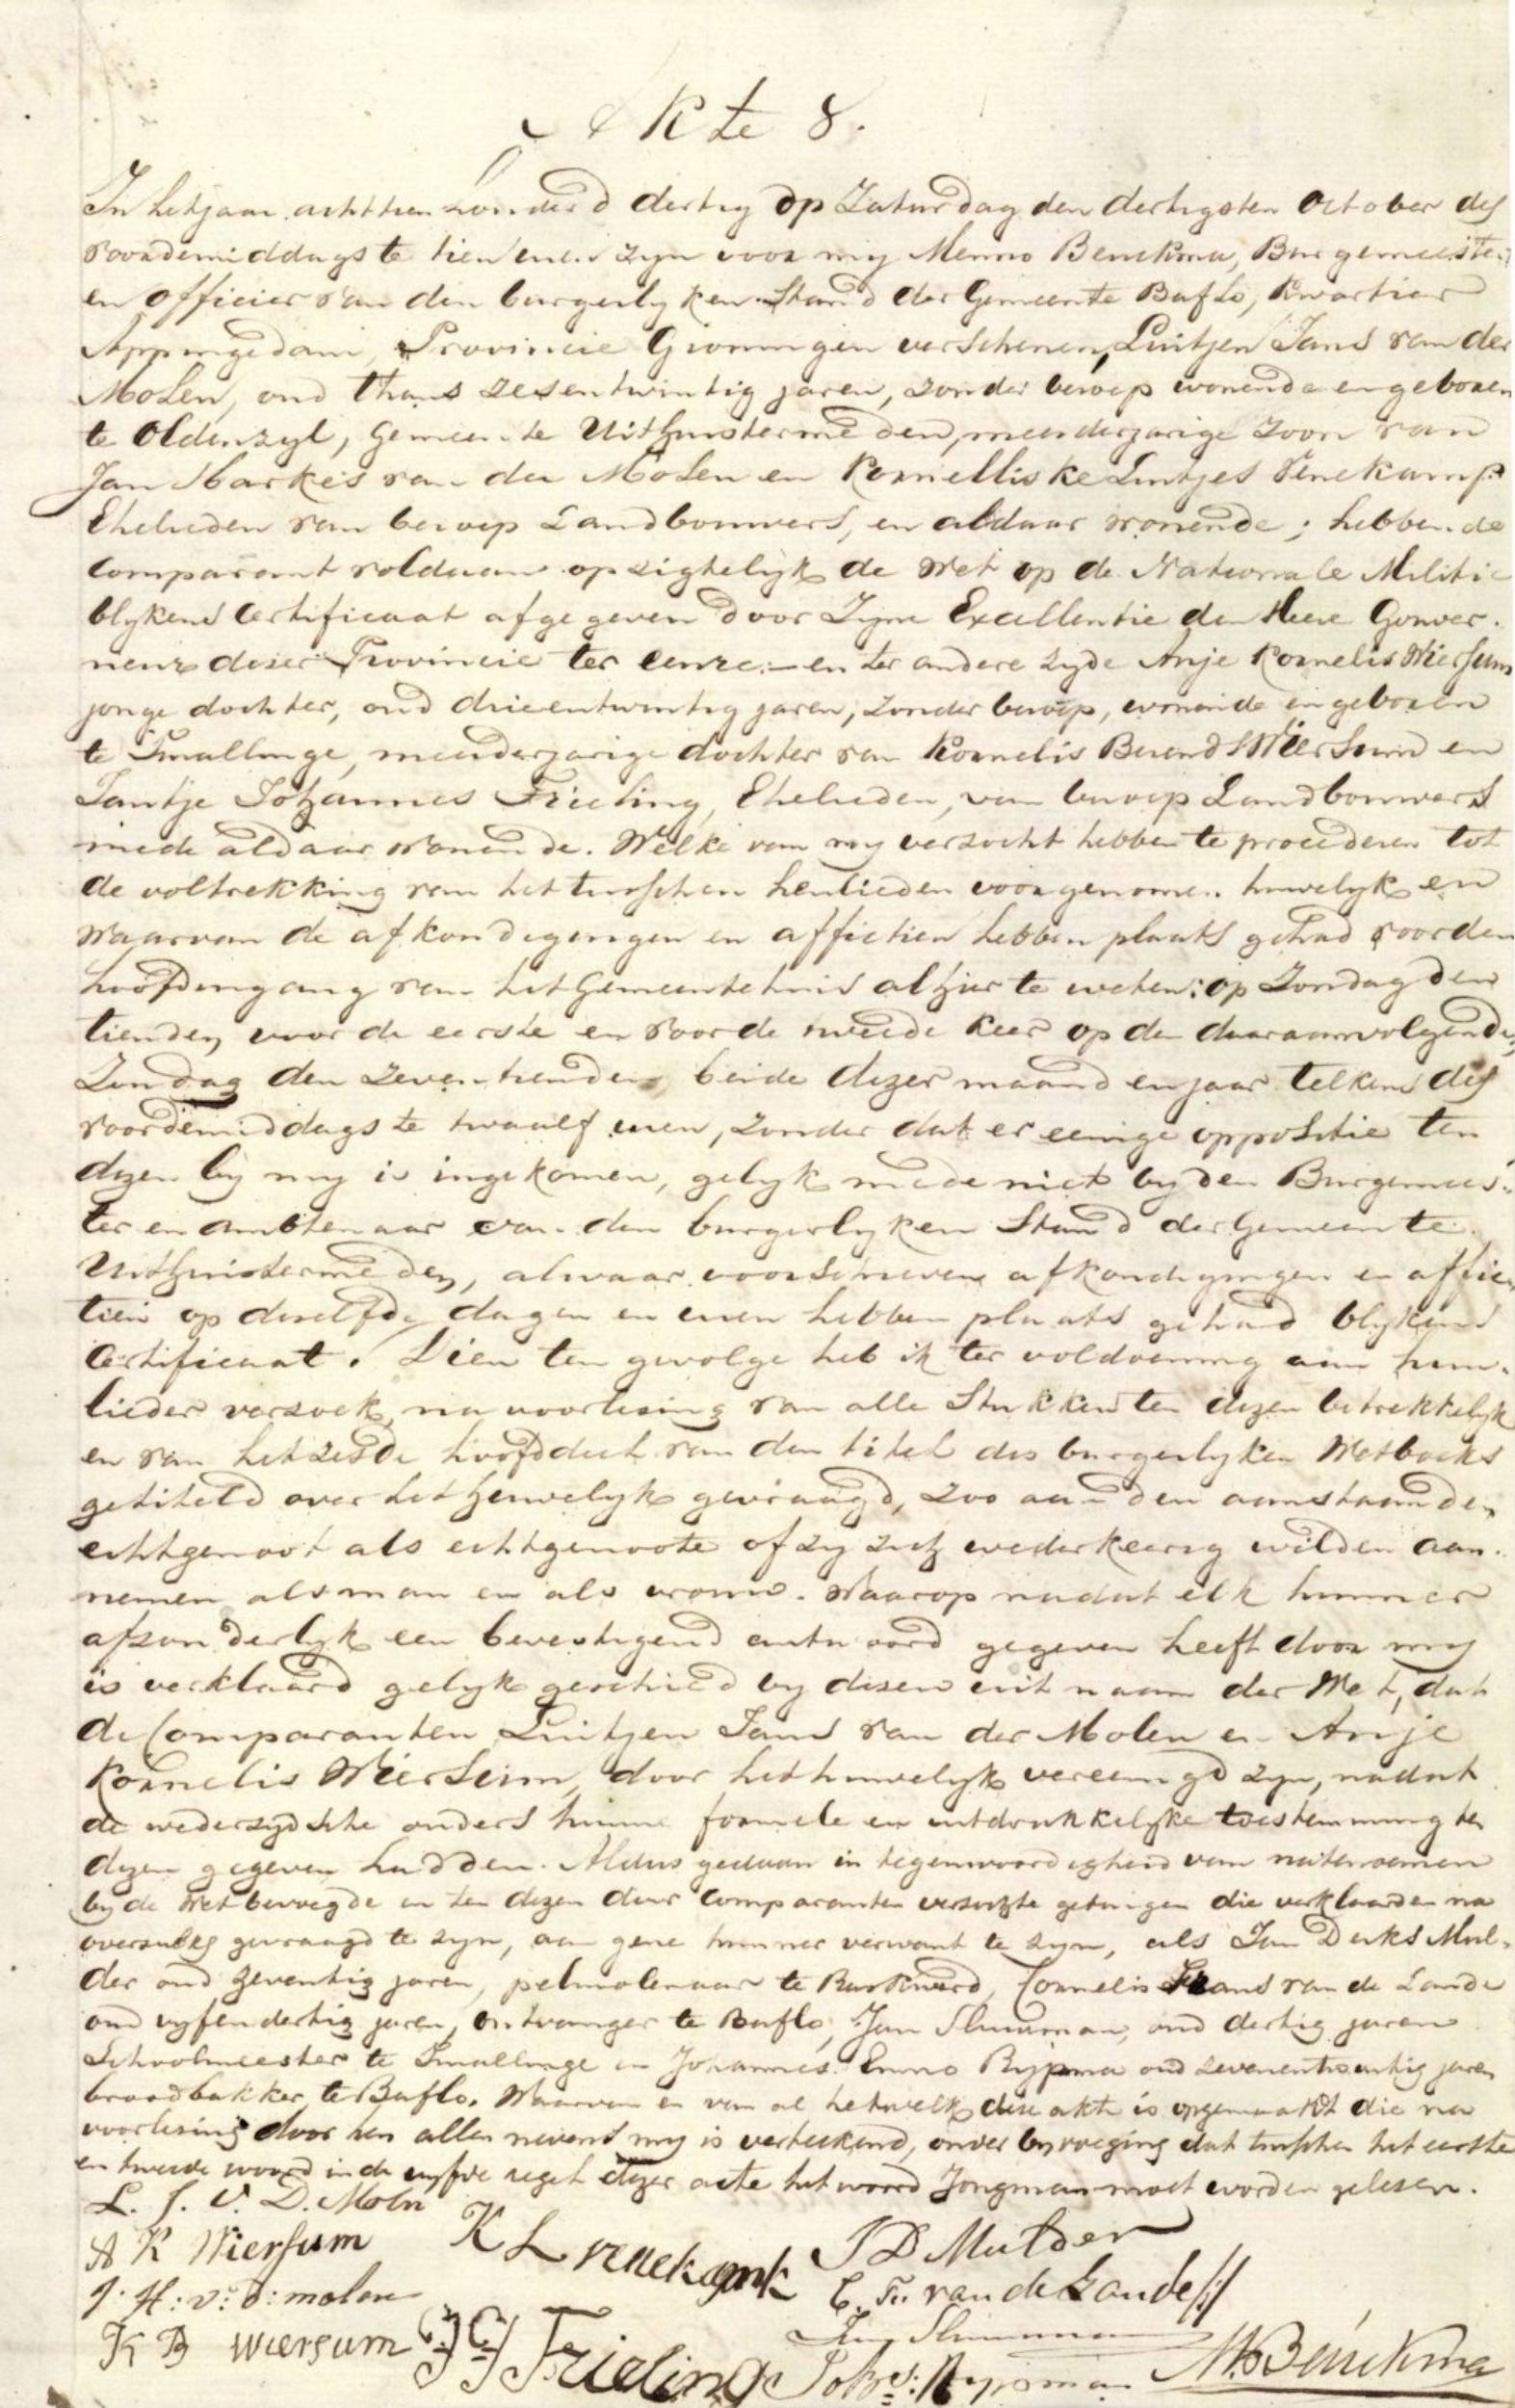 Akte 8.
In het jaar achttien honderd dertig op Zaturdag den dertigsten October des
voordemiddags te tien uren zyn voor my Menno Benekma, Burgemeester
en officier van den burgerlyken Stand der Gemeente Baflo, Kwartier
Appingedam, Provincie Groningen verschenen, Luitjen Jans van der
Molen, oud thans zesentwintig jaren, zonder beroep wonende en geboren
te Oldenzyl, Gemeente Uithuistermeeden, meerderjarige zoon van
Jan Harkes van der Molen en Kornelliske Luitjes Venekamp
Ehelieden van beroep Landbouwers, en aldaar wonende; hebbende
Comparant voldaan opzigtelyk de Wet op de Nationale Militie
blykens Certificaat afgegeven door Zyne Excellentie den Heere Gouver-
neur dezer Provincie ter eenre; – en ter andere zyde Anje Kornelis Wiersum
jonge dochter, oud drieentwintig jaren, zonder beroep, wonende en geboren
te Tinallinge, meerderjarige dochter van Kornelis Berends Wiersum en
Jantje Johannes Frieling, Ehelieden, van beroep Landbouwers
mede aldaar wonende. Welke van my verzocht hebben te procederen tot
de voltrekking van het tusschen henlieden voorgenomen huwelyk en
waarvan de afkondigingen en affictien hebben plaats gehad voor den
hoofdingang van het Gemeentehuis alhier te weten: op Zondag den
tienden voor de eerste en voor de tweede keer op den daaraanvolgenden
Zondag den zeventienden beide dezer maand en jaar telkens des
voordemiddags te twaalf uren, zonder dat er eenige oppositie ten
dezen by my is ingekomen, gelyk mede niet by den Burgemees-
ter en ambtenaar van den burgerlyken Stand der Gemeente
Uithuistermeeden, alwaar voorschreven afkondigingen en affic-
tien op dezelfde dagen en uren hebben plaats gehad blykens
Certificaat. Dien ten gevolge heb ik ter voldoening aan hun-
lieder verzoek, na voorlezing van alle Stukken ten dezen betrekkelyk
en van het zesde hoofddeel van den titel des burgerlyken Wetboeks
getiteld over het huwelyk gevraagd, zoo aan den aanstaanden
echtgenoot als echtgenoote of zy zich wederkeerig wilden aan-
nemen als man en als vrouw. Waarop nadat elk hunner
afzonderlyk een bevestigend antwoord gegeven heeft door my
is verklaard gelyk geschied by dezen uit naam der Wet, dat
de Comparanten Luitjen Jans van der Molen en Anje
Kornelis Wiersum, door het huwelyk vereenigd zyn, nadat
de wederzydsche ouders hunne formele en uitdrukkelyke toestemming ten
dezen gegeven hadden. Aldus gedaan in tegenwoordigheid van
by de Wet bevoegde en ten dezen door Comparanten verzochte getuigen die verklaarden na
gevraagd te zyn, aan gene hunner verwant te zyn, als Jan Derks Mul-
der oud zeventig jaren, pelmolenaar te Raskwerd, Cornelis Frans van de Lande
oud vyfendertig jaren, ontvanger te Baflo, Jan oud dertig jaren
Schoolmeester te Tinallinge en Johannes Enno Rypma oud zevenentwintig jaren
broodbakker te Baflo. Waarvan en van al hetwelk deze akte is opgemaakt die na
voorlezing door hen allen nevens my is verteekend, onder byvoeging dat tusschen het eerste
en tweede woord in de vyfde regel dezer acte het woord Jongman moet worden gelezen.
L. J. V. D. Moln
A K Wiersum
K L venekamp
J D Mulder
J. H: v: d: molen
C. Fr. van de Lande
K B wiersum
J J Frieling
Joh: E: Rypma
M Benekma